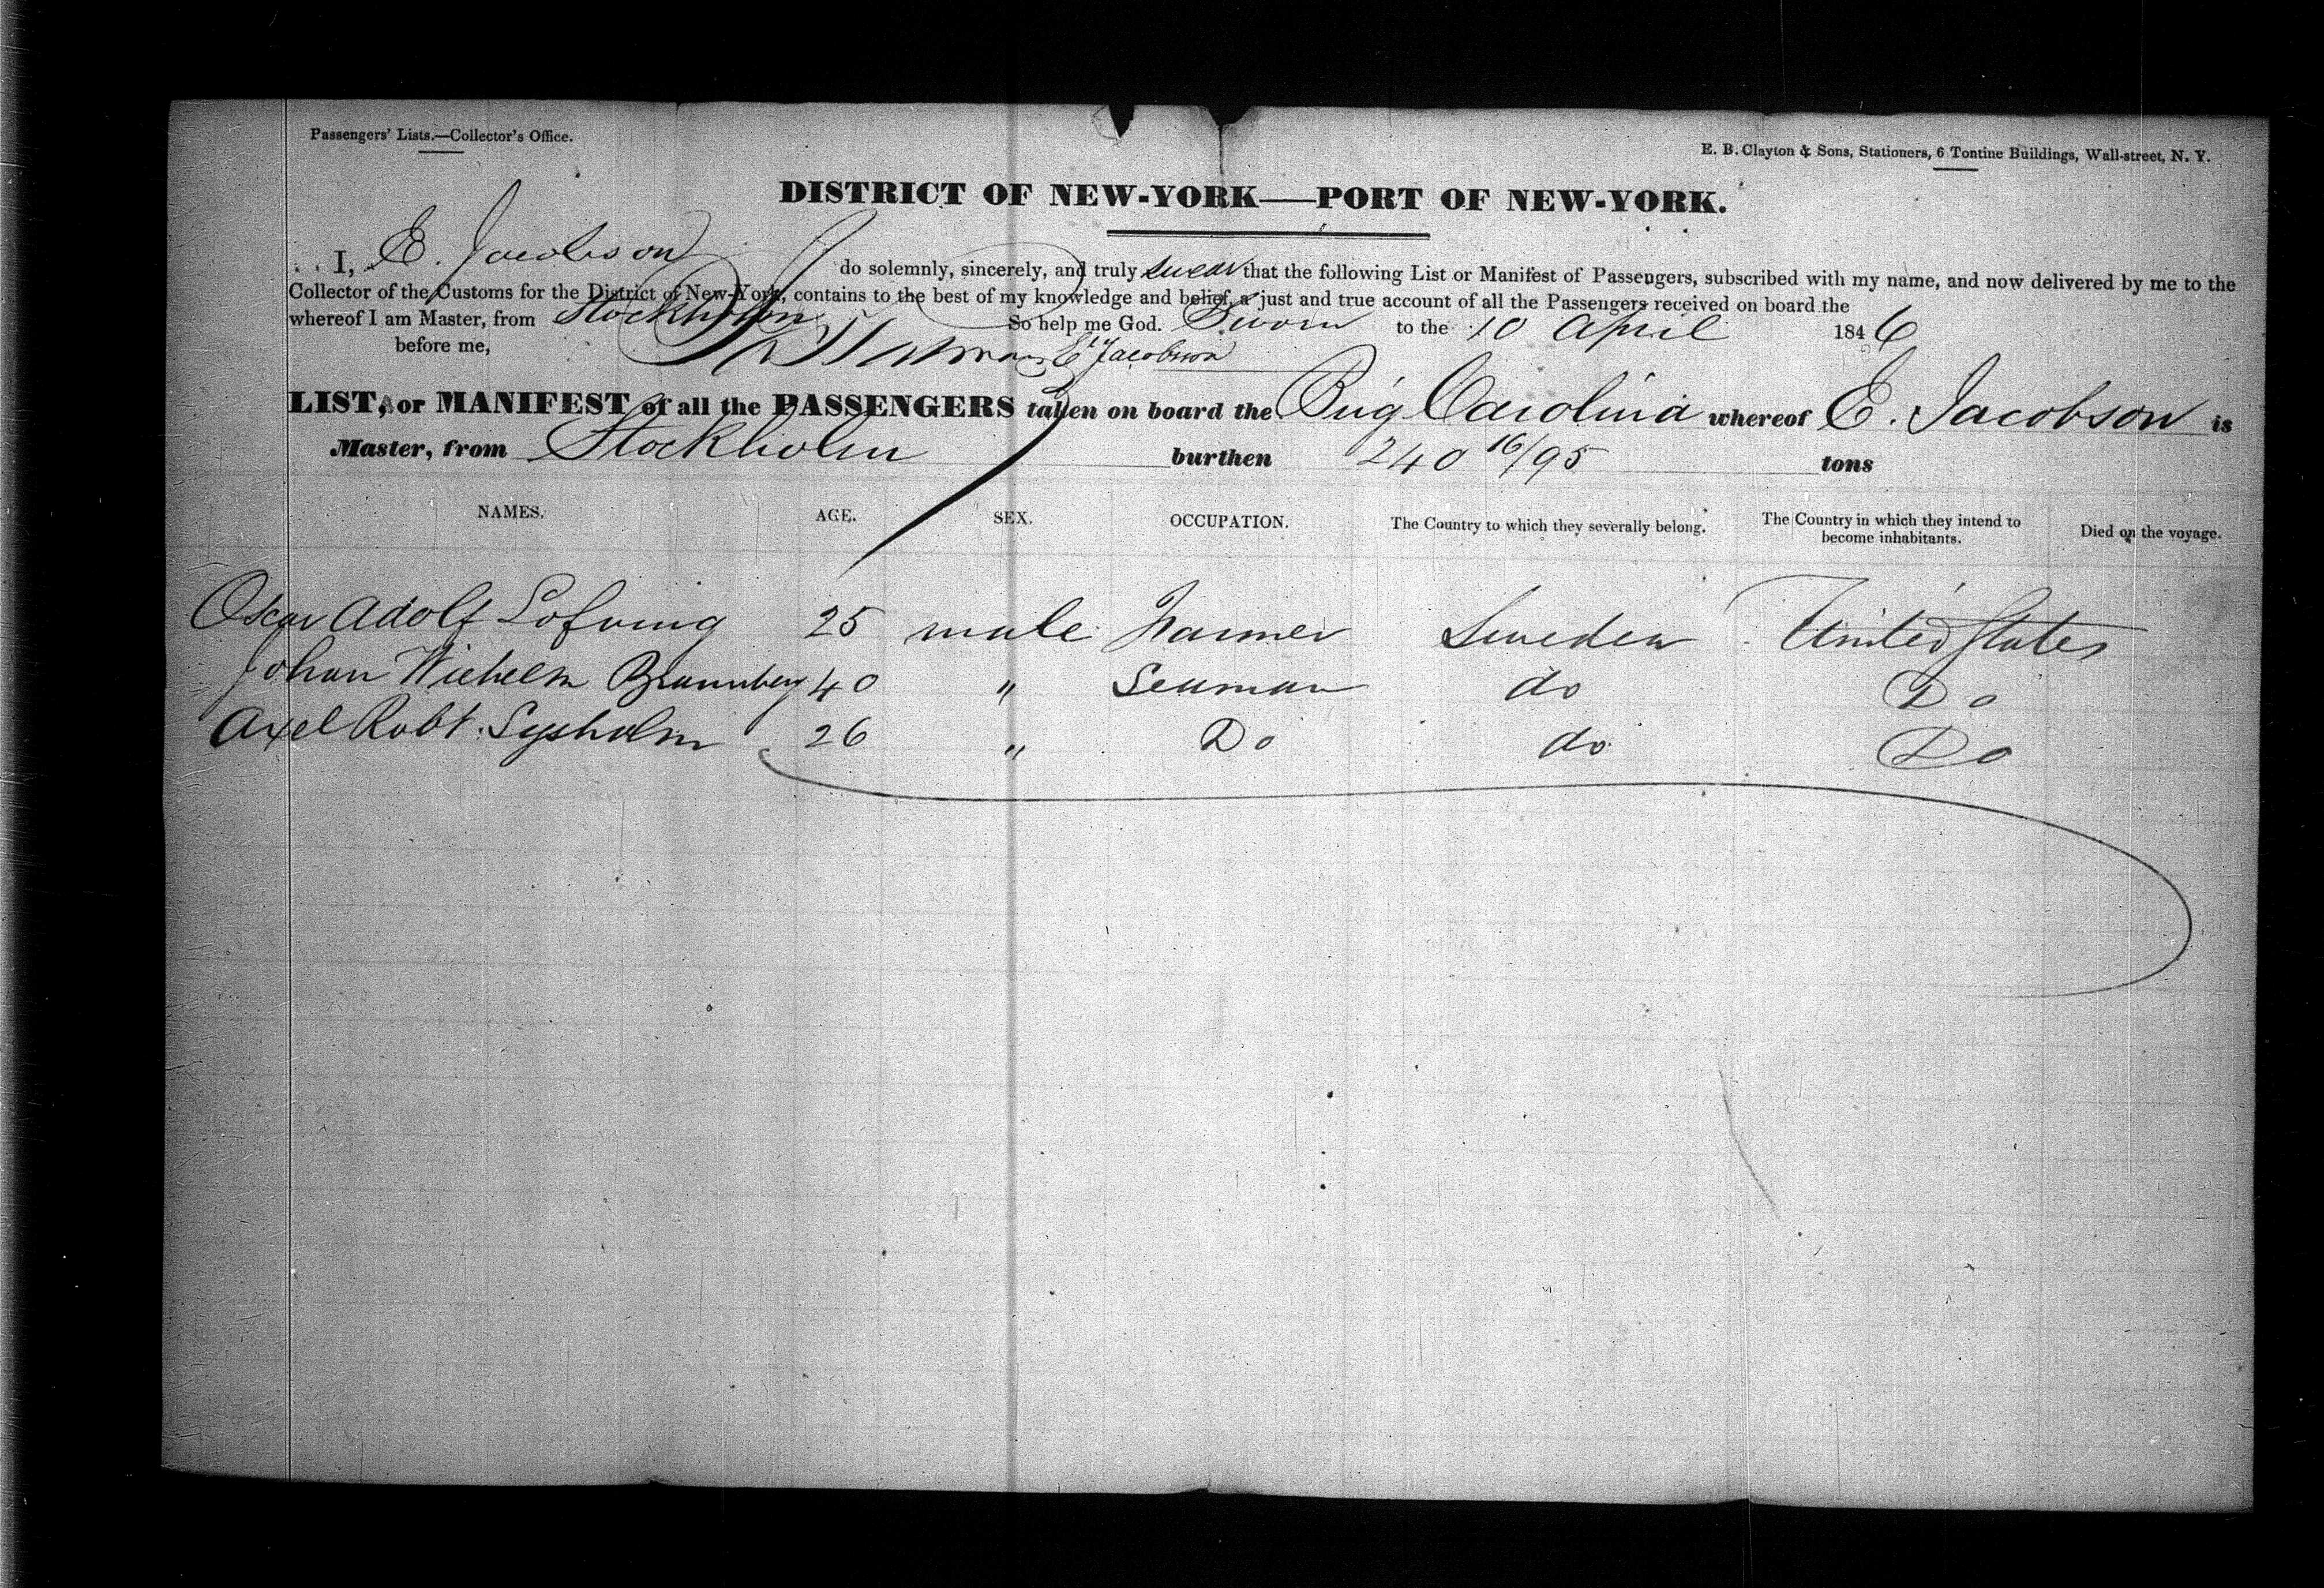 Passengers' Lists.—Collector's Office.
E. B. Clayton & Sons, Stationers, 6 Tontine Buildings, Wall-street, N. Y.
DISTRICT OF NEW-YORK—PORT OF NEW-YORK.
I, E. Jacobson do solemnly, sincerely, and truly swear that the following List or Manifest of Passengers, subscribed with my name, and now delivered by me to the
Collector of the Customs for the District of New-York, contains to the best of my knowledge and belief, a just and true account of all the Passengers received on board the
whereof I am Master, from Stockholm So help me God. Sworn to the 10 April 1846
before me, E Jacobson
LIST, or MANIFEST of all the PASSENGERS taken on board the Brig Carolina whereof E. Jacobson is
Master, from Stockholm burthen 240 16/95 tons
NAMES. AGE. SEX. OCCUPATION. The Country to which they severally belong. The Country in which they intend to become inhabitants. Died on the voyage.
Oscar Adolf Lofving 25 male Farmer Sweden United States
Johan Wilhelm 40 " Seaman do Do
Axel Robt. 26 " Do do Do